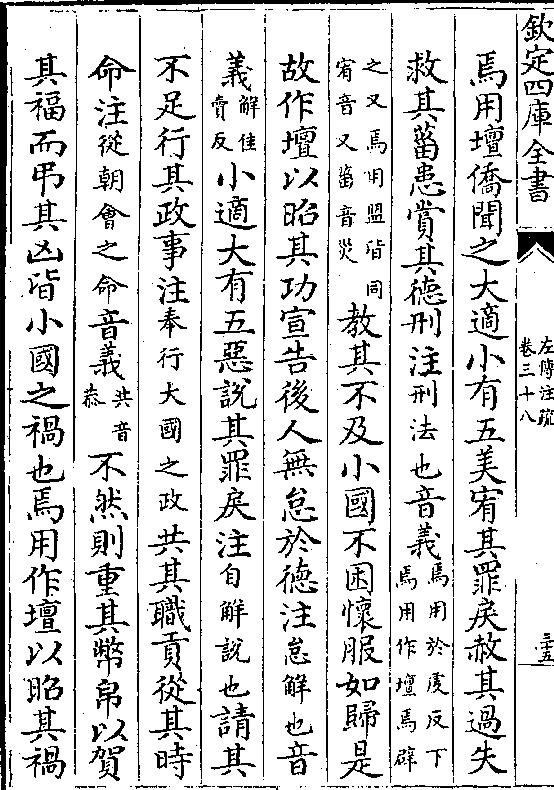 欽定四庫全書
左傳注疏
卷三十八
三五
焉用壇僑聞之大適小有五美宥其罪戾赦其過失
救其菑患賞其德刑注刑法也音義焉用於虔反下焉用作壇焉辟
之又焉用盟皆同宥音又菑音災教其不及小國不困懷服如歸是
故作壇以昭其功宣告後人無怠於德注怠解也音
義解佳賣反小適大有五惡說其罪戾注自解說也請其
不足行其政事注奉行大國之政共其職貢從其時
命注從朝會之命音義共音恭不然則重其幣帛以賀
其福而弔其凶皆小國之禍也焉用作壇以昭其禍